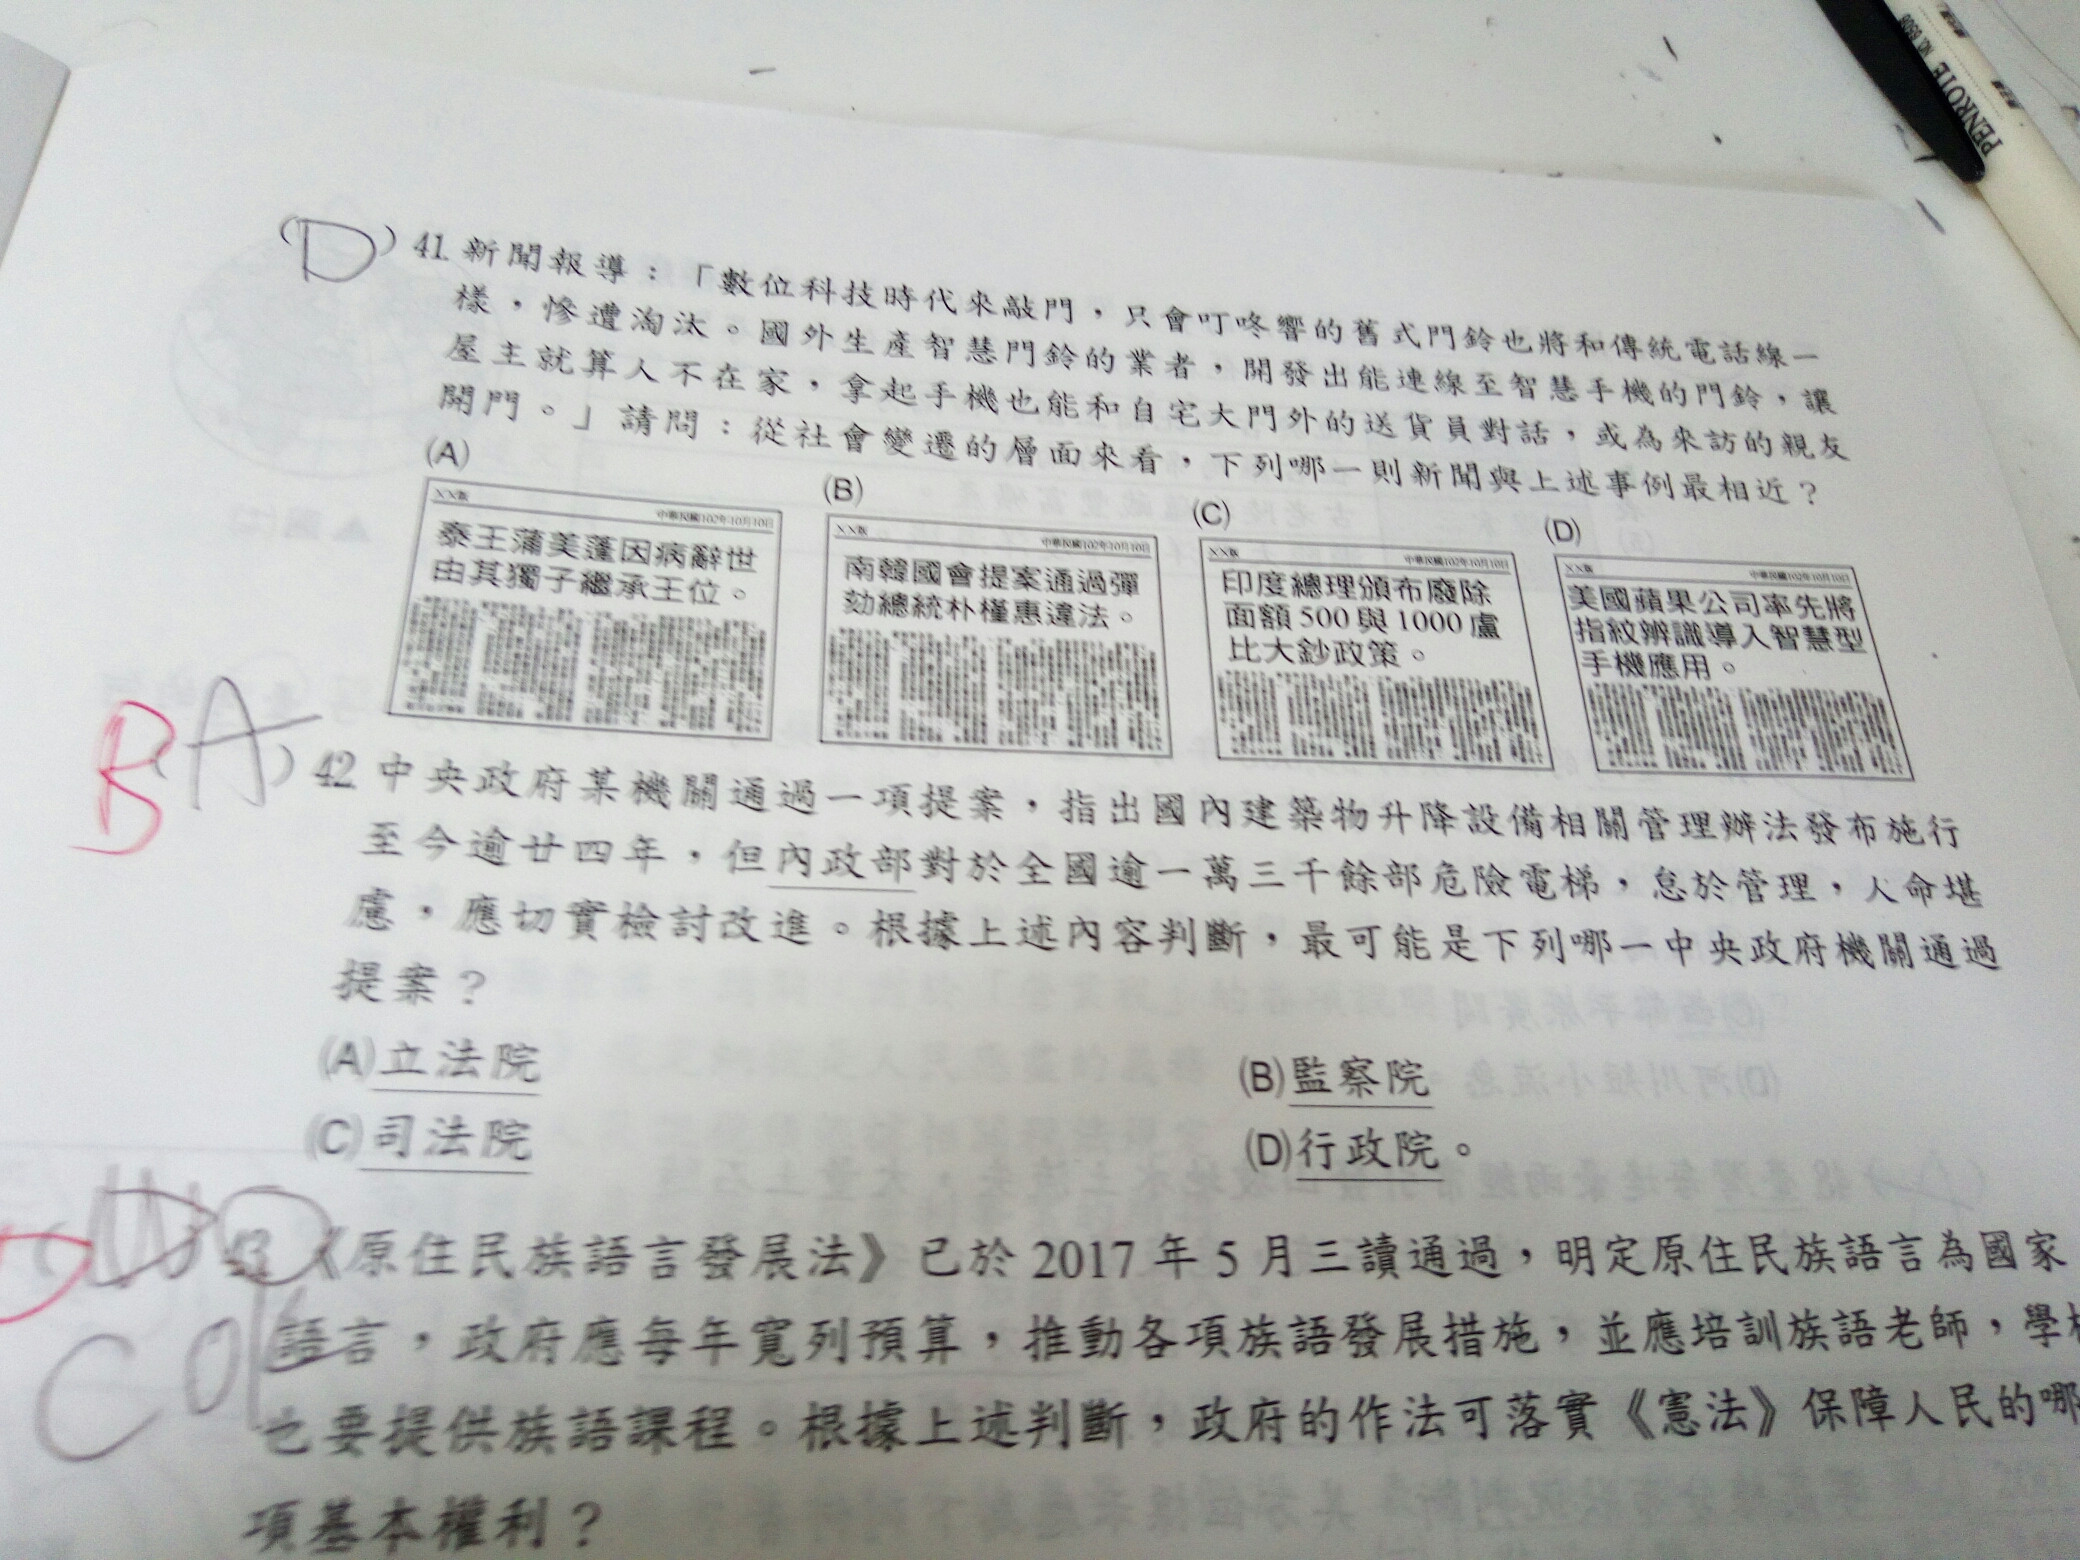 PENROTE NO. 6506
(D) 41. 新聞報導：「數位科技時代來敲門，只會叮咚響的舊式門鈴也將和傳統電話線一
樣，慘遭淘汰。國外生產智慧門鈴的業者，開發出能連線至智慧手機的門鈴，讓
屋主就算人不在家，拿起手機也能和自宅大門外的送貨員對話，或為來訪的親友
開門。」請問：從社會變遷的層面來看，下列哪一則新聞與上述事例最相近？
(A)
XX版
中華民國102年10月10日
泰王蒲美蓬因病辭世
由其獨子繼承王位。
(B)
XX版
中華民國102年10月10日
南韓國會提案通過彈
劾總統朴槿惠違法。
(C)
XX版
中華民國102年10月10日
印度總理頒布廢除
面額500與1000盧
比大鈔政策。
(D)
XX版
中華民國102年10月10日
美國蘋果公司率先將
指紋辨識導入智慧型
手機應用。
B (A) 42 中央政府某機關通過一項提案，指出國內建築物升降設備相關管理辦法發布施行
至今逾廿四年，但內政部對於全國逾一萬三千餘部危險電梯，怠於管理，人命堪
慮，應切實檢討改進。根據上述內容判斷，最可能是下列哪一中央政府機關通過
提案？
(A)立法院
(B)監察院
(C)司法院
(D)行政院。
D 43 《原住民族語言發展法》已於 2017 年 5 月三讀通過，明定原住民族語言為國家
語言，政府應每年寬列預算，推動各項族語發展措施，並應培訓族語老師，學校
也要提供族語課程。根據上述判斷，政府的作法可落實《憲法》保障人民的哪
項基本權利？